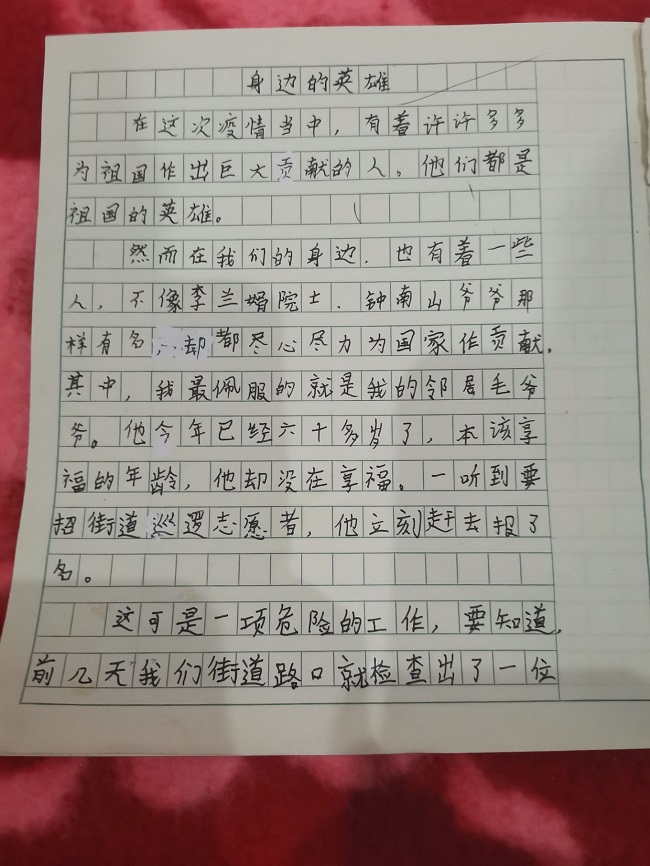 身边的英雄
在这次疫情当中，有着许许多多
为祖国作出巨大贡献的人。他们都是
祖国的英雄。
然而在我们的身边．也有着一些
人，不像李兰婿院士．钟南山爷爷那
样有名，却都尽心尽力为国家作贡献．
其中，我最佩服的就是我的邻居毛爷
爷。他今年已经六十多岁了，本该享
福的年龄，他却没在享福。一听到要
招街道巡逻志愿者，他立刻赶去报了
名。
这可是一项危险的工作，要知道，
前几天我们街道路口就检查出了一位